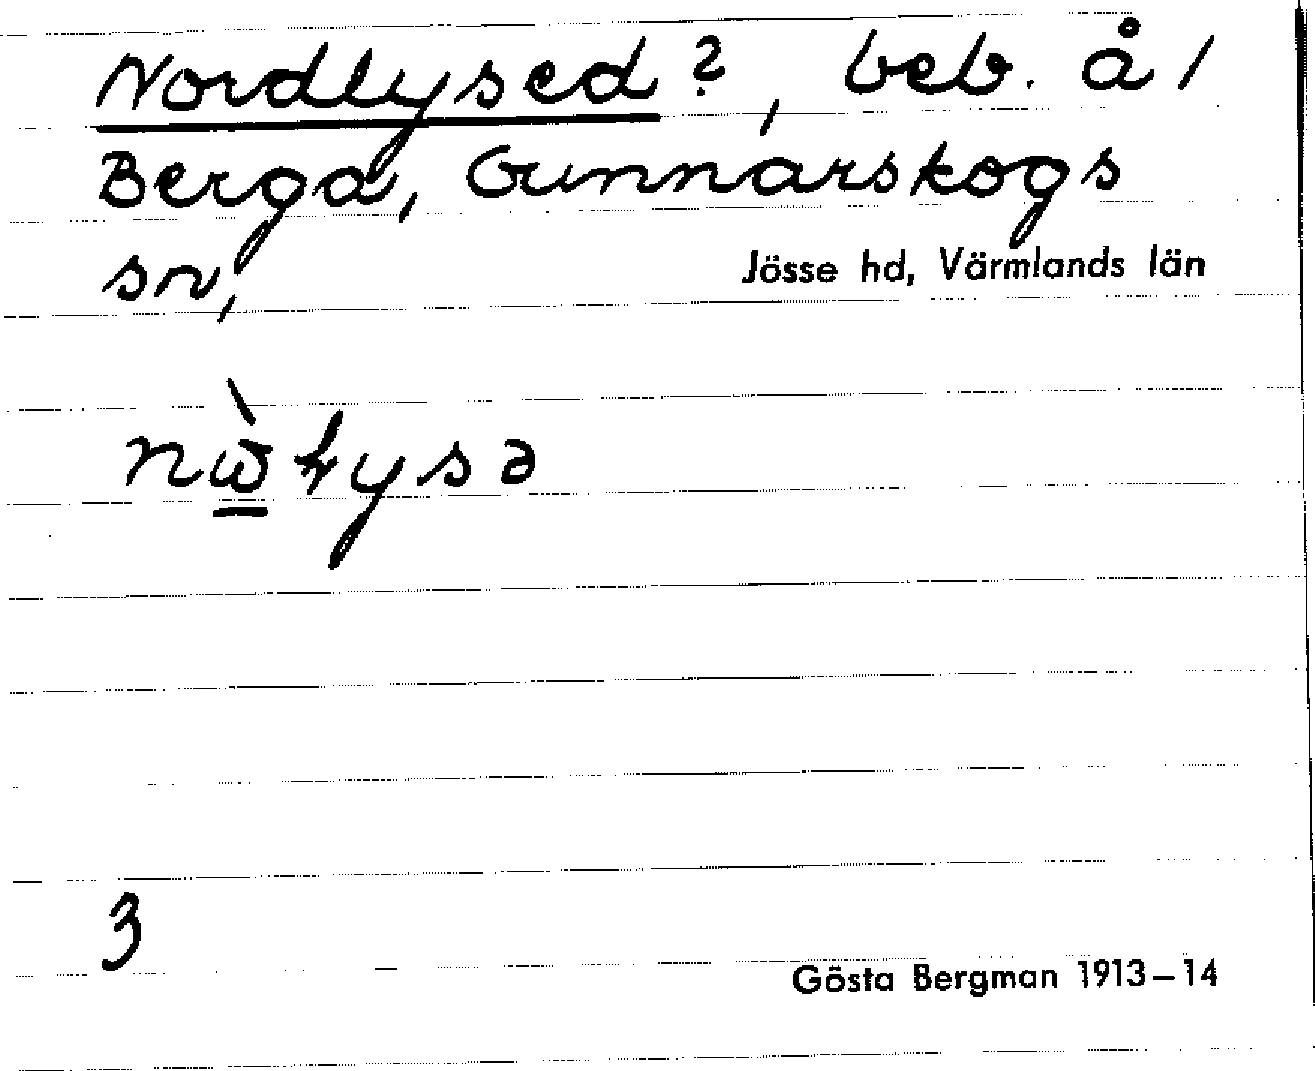 Nordlysed?, beb. å /
Berga, Gunnarskogs
sn,
Jösse hd, Värmlands län
3
Gösta Bergman 1913–14